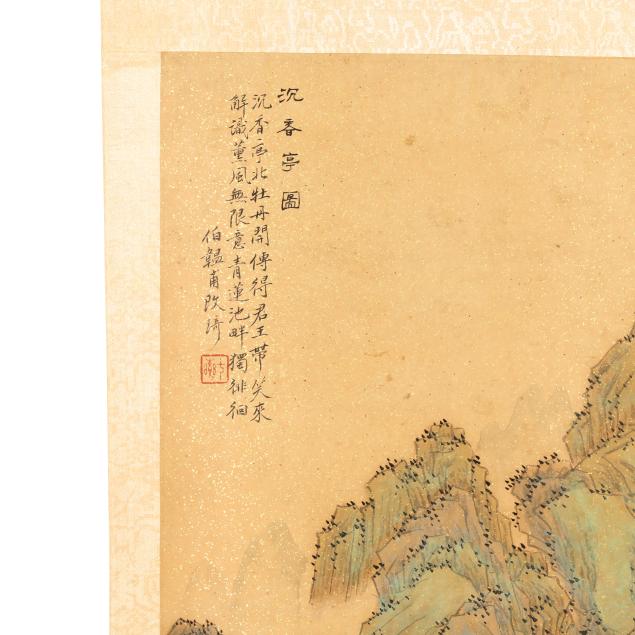 沉香亭圖
沉香亭北牡丹開傳得君王帶笑來
解識薰風無限意青蓮池畔獨徘徊
伯韞甫改琦